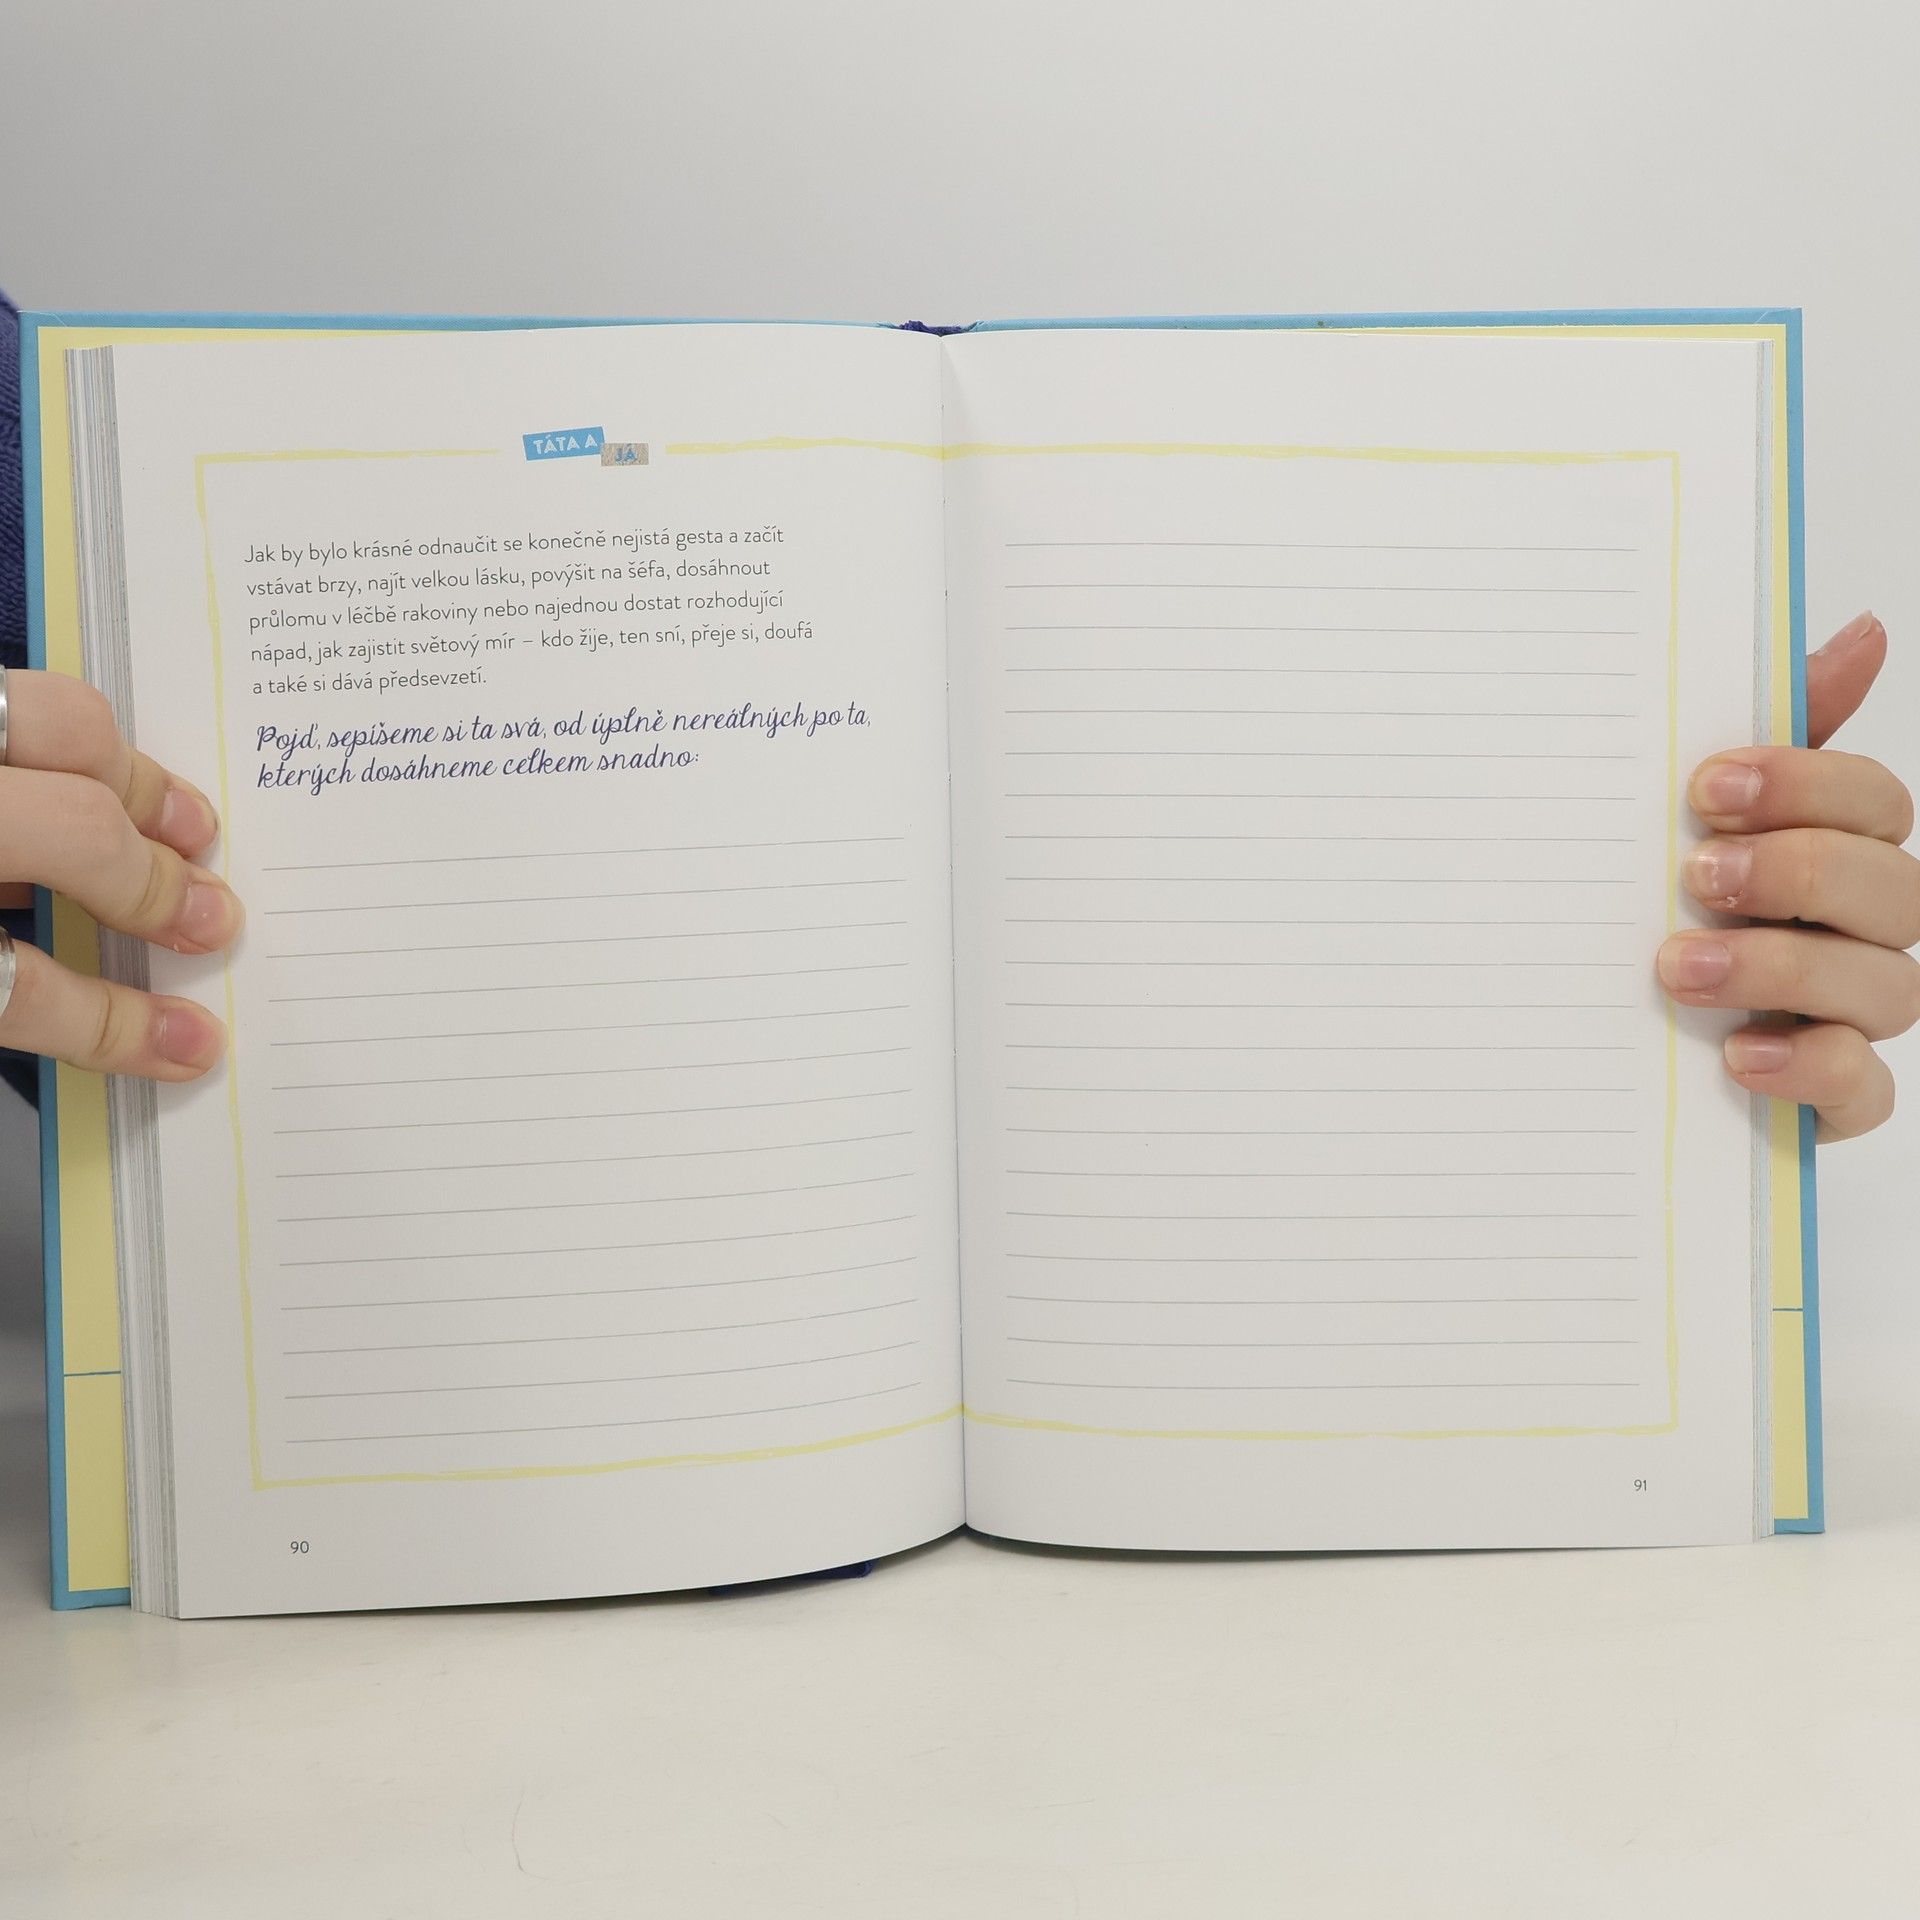 TÁTA A
JÁ
Jak by bylo krásné odnaučit se konečně nejistá gesta a začít
vstávat brzy, najít velkou lásku, povýšit na šéfa, dosáhnout
průlomu v léčbě rakoviny nebo najednou dostat rozhodující
nápad, jak zajistit světový mír – kdo žije, ten sní, přeje si, doufá
a také si dává předsevzetí.
Pojď, sepíšeme si ta svá, od úplně nereálných po ta,
kterých dosáhneme celkem snadno:
90
91